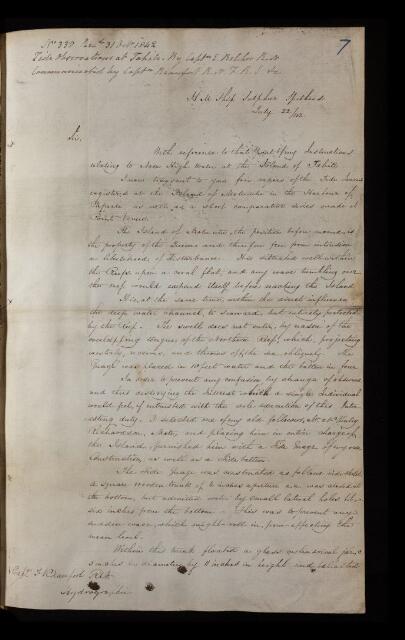 7
No 339 Recd 31 Octr 1842
Tide Observations at Tahiti. By Captn E. Belcher R.N.
Communicated by Captn Beaufort R.N. F.R.S. &c
H.M. Ship Sulphur Spithead
July 22/42
Sir,
With reference to that part of my Instructions
relating to New High Water, at the Island of Tahiti
I now transmit to you fair copies of the Tide Series
registered at the Island of Motuuta in the Harbour of
Papiete as well as a short comparative series made at
Point Venus.
The Island of Motuuta, the position before named is
the property of the Queen and therefore free from intrusion
or likelihood of disturbance. It is situated well within
the Reefs upon a coral flat, and any wave tumbling over
the reef would expend itself before reaching the Island
It is, at the same time, within the direct influence of
the deep water channel, to seaward, but entirely protected
by the Reef. The swell does not enter, by reason of the
overlapping tongues of the Northern Reef, which, projecting
westerly, receives, and throws off the sea obliquely. The
Guage was placed in 10 feet water and the batten in four
In order to prevent any confusion by change of observers
and thus destroying the interest which a single individual
would feel, if intrusted with the sole execution of this Inte-
resting duty, I selected one of my
Richardson, Mate, and placing him in entire charge of
the Island, furnished him with a Tide Guage of my own
construction, as well as a Tide batten.
The Tide Guage was constructed as follows
a square wooden trunk of inches aperture was closed at
the bottom, but admitted water by small lateral holes
six inches from the bottom. This was to prevent any
sudden wave, which might roll in, from affecting the
mean level.
Within this trunk floated a glass cylindrical
inches in diameter by 11 inches in height and
Captn F. Beaufort R.N.
Hydrographer